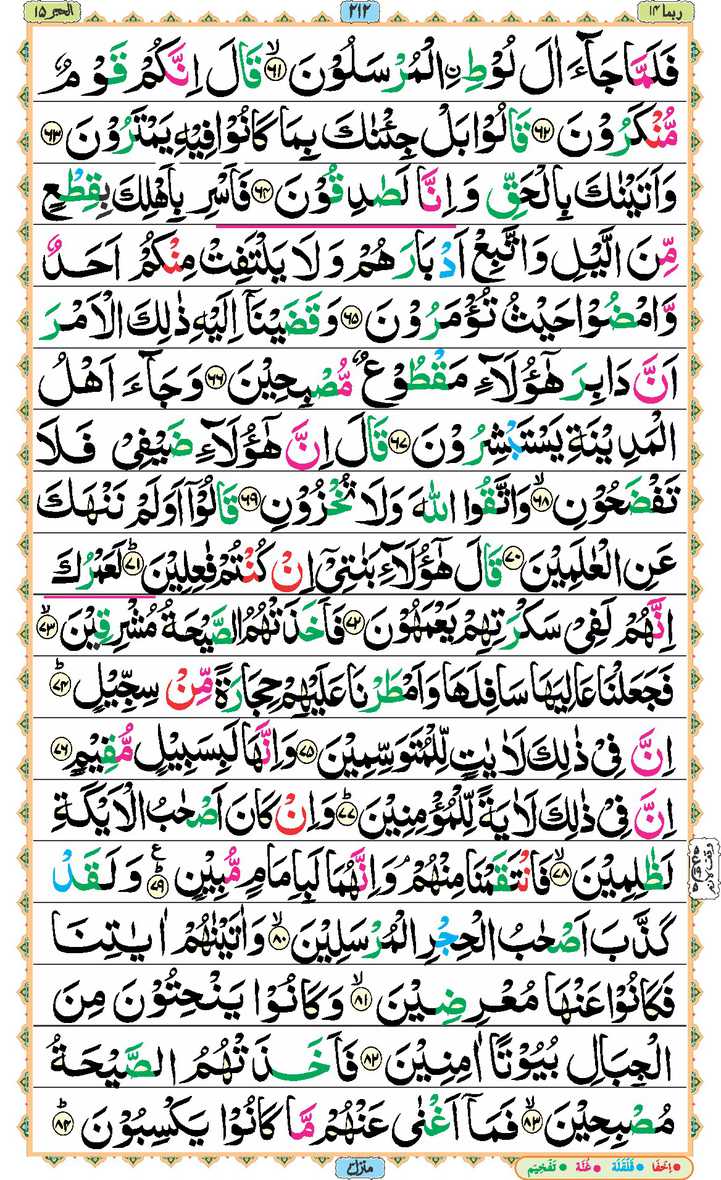 ربما ۱۴
۲۱۲
الحجر ۱۵
فَلَمَّا جَآءَ اٰلَ لُوۡطِ ۨالۡمُرۡسَلُوۡنَ ۙ‏﴿۶۱﴾ قَالَ اِنَّكُمۡ قَوۡمٌ
مُّنۡكَرُوۡنَ‏ ﴿۶۲﴾ قَالُوۡا بَلۡ جِئۡنٰكَ بِمَا كَانُوۡا فِيۡهِ يَمۡتَرُوۡنَ‏ ﴿۶۳﴾
وَاَتَيۡنٰكَ بِالۡحَـقِّ وَاِنَّا لَصٰدِقُوۡنَ‏ ﴿۶۴﴾ فَاَسۡرِ بِاَهۡلِكَ بِقِطۡعٍ
مِّنَ الَّيۡلِ وَاتَّبِعۡ اَدۡبَارَهُمۡ وَلَا يَلۡـتَفِتۡ مِنۡكُمۡ اَحَدٌ
وَّامۡضُوۡا حَيۡثُ تُؤۡمَرُوۡنَ‏ ﴿۶۵﴾ وَقَضَيۡنَاۤ اِلَيۡهِ ذٰلِكَ الۡاَمۡرَ
اَنَّ دَابِرَ هٰٓؤُلَاۤءِ مَقۡطُوۡعٌ مُّصۡبِحِيۡنَ‏ ﴿۶۶﴾ وَجَآءَ اَهۡلُ
الۡمَدِيۡنَةِ يَسۡتَـبۡشِرُوۡنَ‏ ﴿۶۷﴾ قَالَ اِنَّ هٰٓؤُلَاۤءِ ضَيۡفِىۡ فَلَا
تَفۡضَحُوۡنِۙ‏ ﴿۶۸﴾ وَاتَّقُوا اللّٰهَ وَلَا تُخۡزُوۡنِ‏ ﴿۶۹﴾ قَالُوۡۤا اَوَلَمۡ نَـنۡهَكَ
عَنِ الۡعٰلَمِيۡنَ‏ ﴿۷۰﴾ قَالَ هٰٓؤُلَاۤءِ بَنٰتِىۡۤ اِنۡ كُنۡتُمۡ فٰعِلِيۡنَؕ‏ ﴿۷۱﴾ لَعَمۡرُكَ
اِنَّهُمۡ لَفِىۡ سَكۡرَتِهِمۡ يَعۡمَهُوۡنَ‏ ﴿۷۲﴾ فَاَخَذَتۡهُمُ الصَّيۡحَةُ مُشۡرِقِيۡنَۙ‏ ﴿۷۳﴾
فَجَعَلۡنَا عَالِيـَهَا سَافِلَهَا وَ اَمۡطَرۡنَا عَلَيۡهِمۡ حِجَارَةً مِّنۡ سِجِّيۡلٍؕ‏ ﴿۷۴﴾
اِنَّ فِىۡ ذٰلِكَ لَاٰيٰتٍ لِّـلۡمُتَوَسِّمِيۡنَ‏ ﴿۷۵﴾ وَاِنَّهَا لَبِسَبِيۡلٍ مُّقِيۡمٍ‏ ﴿۷۶﴾
اِنَّ فِىۡ ذٰلِكَ لَاٰيَةً لِّـلۡمُؤۡمِنِيۡنَؕ‏ ﴿۷۷﴾ وَاِنۡ كَانَ اَصۡحٰبُ الۡاَيۡكَةِ
لَظٰلِمِيۡنَۙ‏ ﴿۷۸﴾ فَانتَقَمۡنَا مِنۡهُمۡ‌ۘ وَاِنَّهُمَا لَبِاِمَامٍ مُّبِيۡنٍؕ ع‏ ﴿۷۹﴾ وَلَـقَدۡ
كَذَّبَ اَصۡحٰبُ الۡحِجۡرِ الۡمُرۡسَلِيۡنَۙ‏ ﴿۸۰﴾ وَاٰتَيۡنٰهُمۡ اٰيٰتِنَا
فَكَانُوۡا عَنۡهَا مُعۡرِضِيۡنَۙ‏ ﴿۸۱﴾ وَكَانُوۡا يَنۡحِتُوۡنَ مِنَ
الۡجِبَالِ بُيُوۡتًا اٰمِنِيۡنَ‏ ﴿۸۲﴾ فَاَخَذَتۡهُمُ الصَّيۡحَةُ
مُصۡبِحِيۡنَۙ‏ ﴿۸۳﴾ فَمَاۤ اَغۡنٰى عَنۡهُمۡ مَّا كَانُوۡا يَكۡسِبُوۡنَؕ‏ ﴿۸۴﴾
منزل ۳
اِخفا قَلقَلَة غُنَّة تَفخِيم